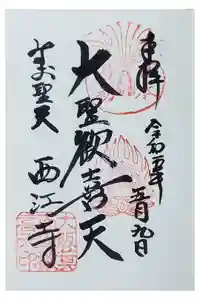 奉拝
令和五年
五月九日
大聖歓喜天
聖天
西江寺